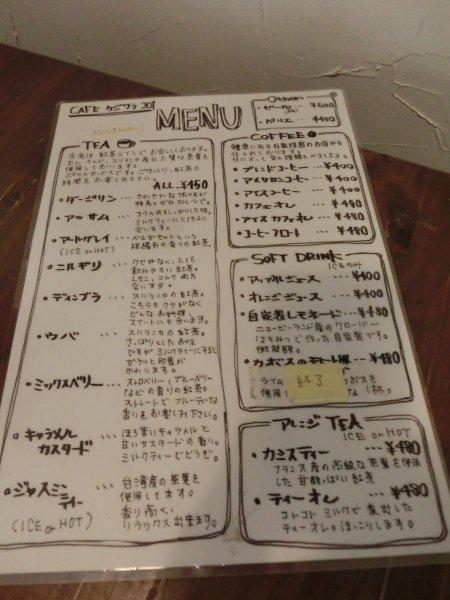 CAFE カジワラ 201
MENU
TEA
当店は 紅茶
ALL. ¥450
・ダージリン ...
特有のゼヒ ストレートで。
・アッサム ...
ミルクティーにとても
合います。
・アールグレイ ...
ベルガモットという
柑橘系の香りの紅茶。
(ICE or HOT)
・ニルギリ ...
クセがなく、とても
飲みやすい紅茶。
レモン、ミルク 両方
合います。
・ディンブラ ...
スリランカの紅茶。
こちらもクセがなく
どんなお料理、
スイートにも合います。
・ウバ ...
スリランカの紅茶。
さっぱりしたお味
ですが ミルクティーにすると
ガラッと印象が
かわります。
・ミックスベリー ...
ストロベリー、ブルーベリー
などの香りの紅茶。
ストレートで フルーティーな
香りをお楽しみ下さい。
・キャラメル
カスタード ...
ほろ苦いキャラメルと
甘いカスタードの香り。
ミルクティーでどうぞ。
・ジャスミン
ティー ...
(ICE or HOT)
台湾産の茶葉を
使用してます。
香り高く、
リラックス出来ます。
Other
・ビール ¥600
・ペリエ ... ¥480
COFFEE
鎌倉にある自家焙煎のお店から
仕入れております。
・ブレンドコーヒー ... ¥400
・アメリカンコーヒー ... ¥400
・アイスコーヒー ... ¥400
・カフェオレ ... ¥480
・アイスカフェオレ ... ¥480
・コーヒーフロート ... ¥480
SOFT DRINK
ICEのみ
・アップルジュース ... ¥400
・オレンジジュース ... ¥400
・自家製レモネード ... ¥480
ニュージーランド産のクローバー
はちみつで作った自家製です。
微炭酸。
・カボスのモヒート風 ... ¥480
ライム
カボスを
使用
な 1杯。
終了
アレンジ TEA
ICE or HOT
・カシスティー ... ¥480
フランス産の高級な茶葉を使用
した 甘酸っぱい紅茶
・ティーオレ ... ¥480
コトコト ミルクで煮出した
ティーオレ。ほっこりします。